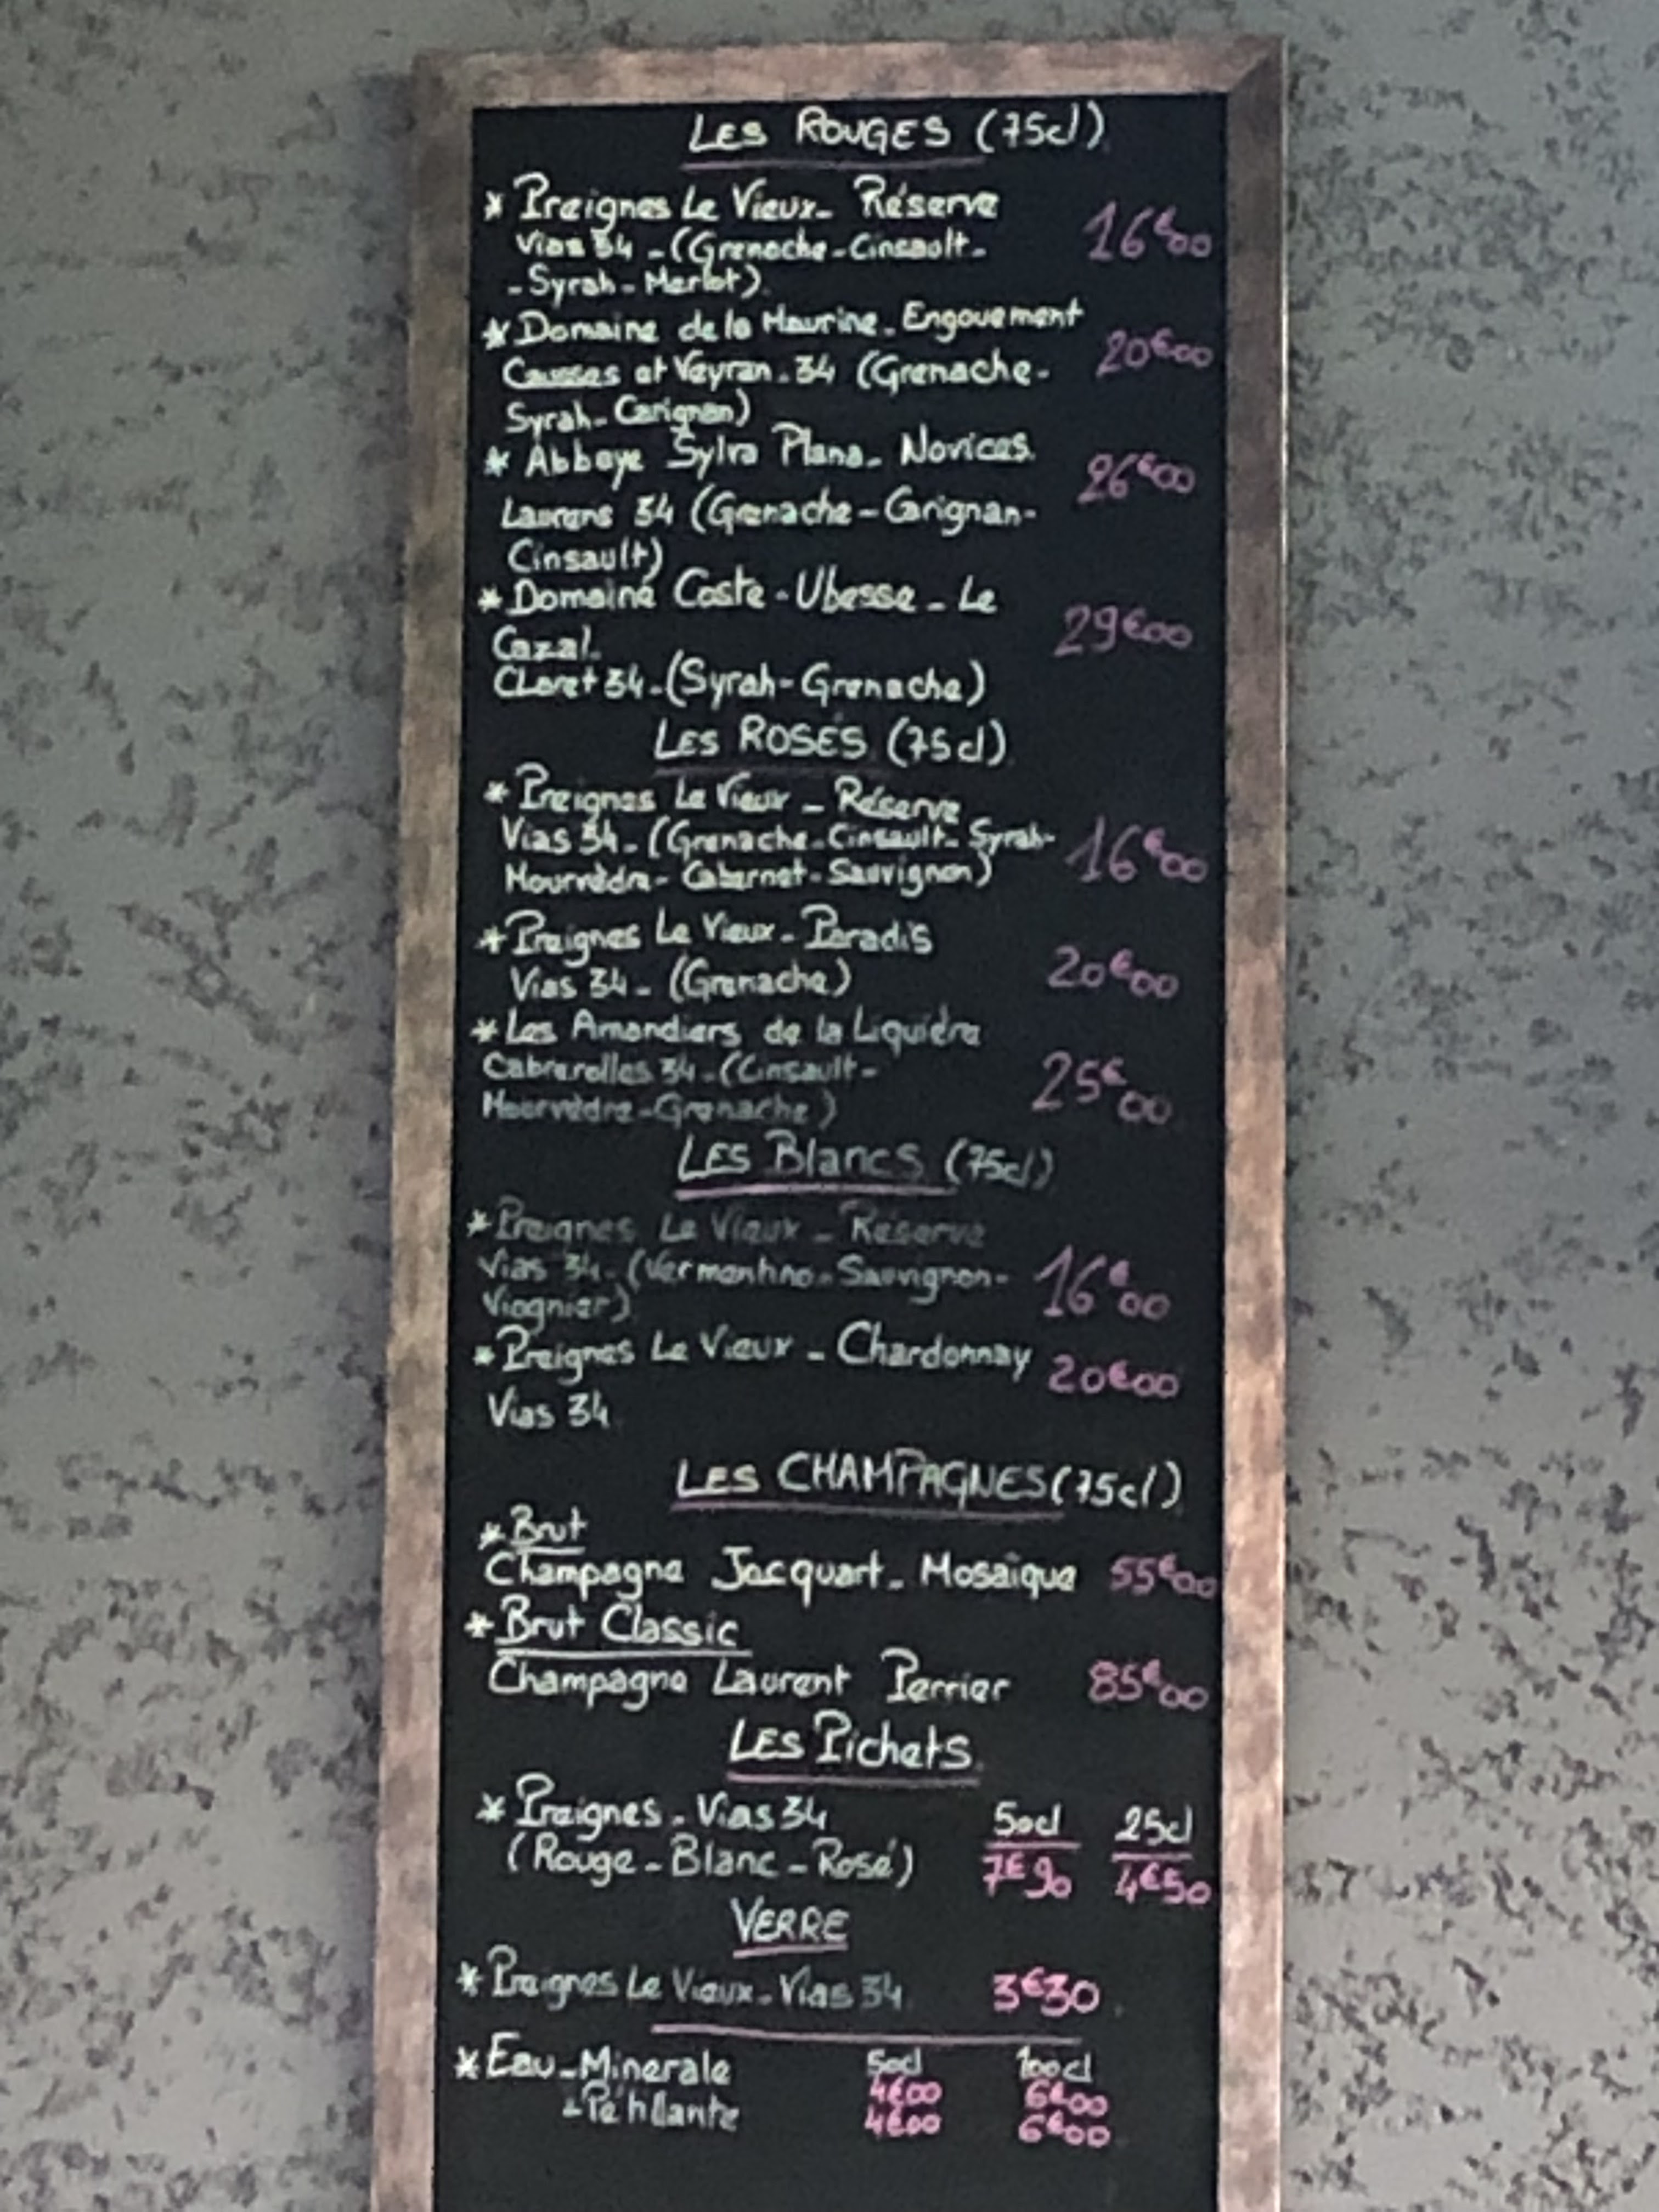 LES ROUGES (75cl)
* Preignes Le Vieux - Réserve 16€00
Vias 34 - (Grenache - Cinsault -
- Syrah - Merlot)
* Domaine de la Maurine - Engouement 20€00
Causses et Veyran - 34 (Grenache -
Syrah - Carignan)
* Abbaye Sylva Plana - Novices 26€00
Laurens 34 (Grenache - Carignan -
Cinsault)
* Domaine Coste - Ubesse - Le 29€00
Cazal
Claret 34 - (Syrah - Grenache)
LES ROSÉS (75cl)
* Preignes Le Vieux - Réserve
Vias 34 - (Grenache - Cinsault - Syrah - 16€00
Mourvèdre - Cabernet - Sauvignon)
* Preignes Le Vieux - Paradis
Vias 34 - (Grenache) 20€00
* Les Amandiers de la Liquière
Cabrerolles 34 - (Cinsault - 25€00
Mourvèdre - Grenache)
LES Blancs (75cl)
* Preignes Le Vieux - Réserve
Vias 34 - (Vermentino - Sauvignon - 16€00
Viognier)
* Preignes Le Vieux - Chardonnay 20€00
Vias 34
LES CHAMPAGNES (75cl)
* Brut
Champagne Jacquart - Mosaïque 55€00
* Brut Classic
Champagne Laurent Perrier 85€00
LES Pichets
* Preignes - Vias 34 50cl 25cl
(Rouge - Blanc - Rosé) 7€90 4€50
VERRE
* Preignes Le Vieux - Vias 34 3€30
* Eau - Minerale 50cl 100cl
4€00 6€00
- Pétillante 4€00 6€00